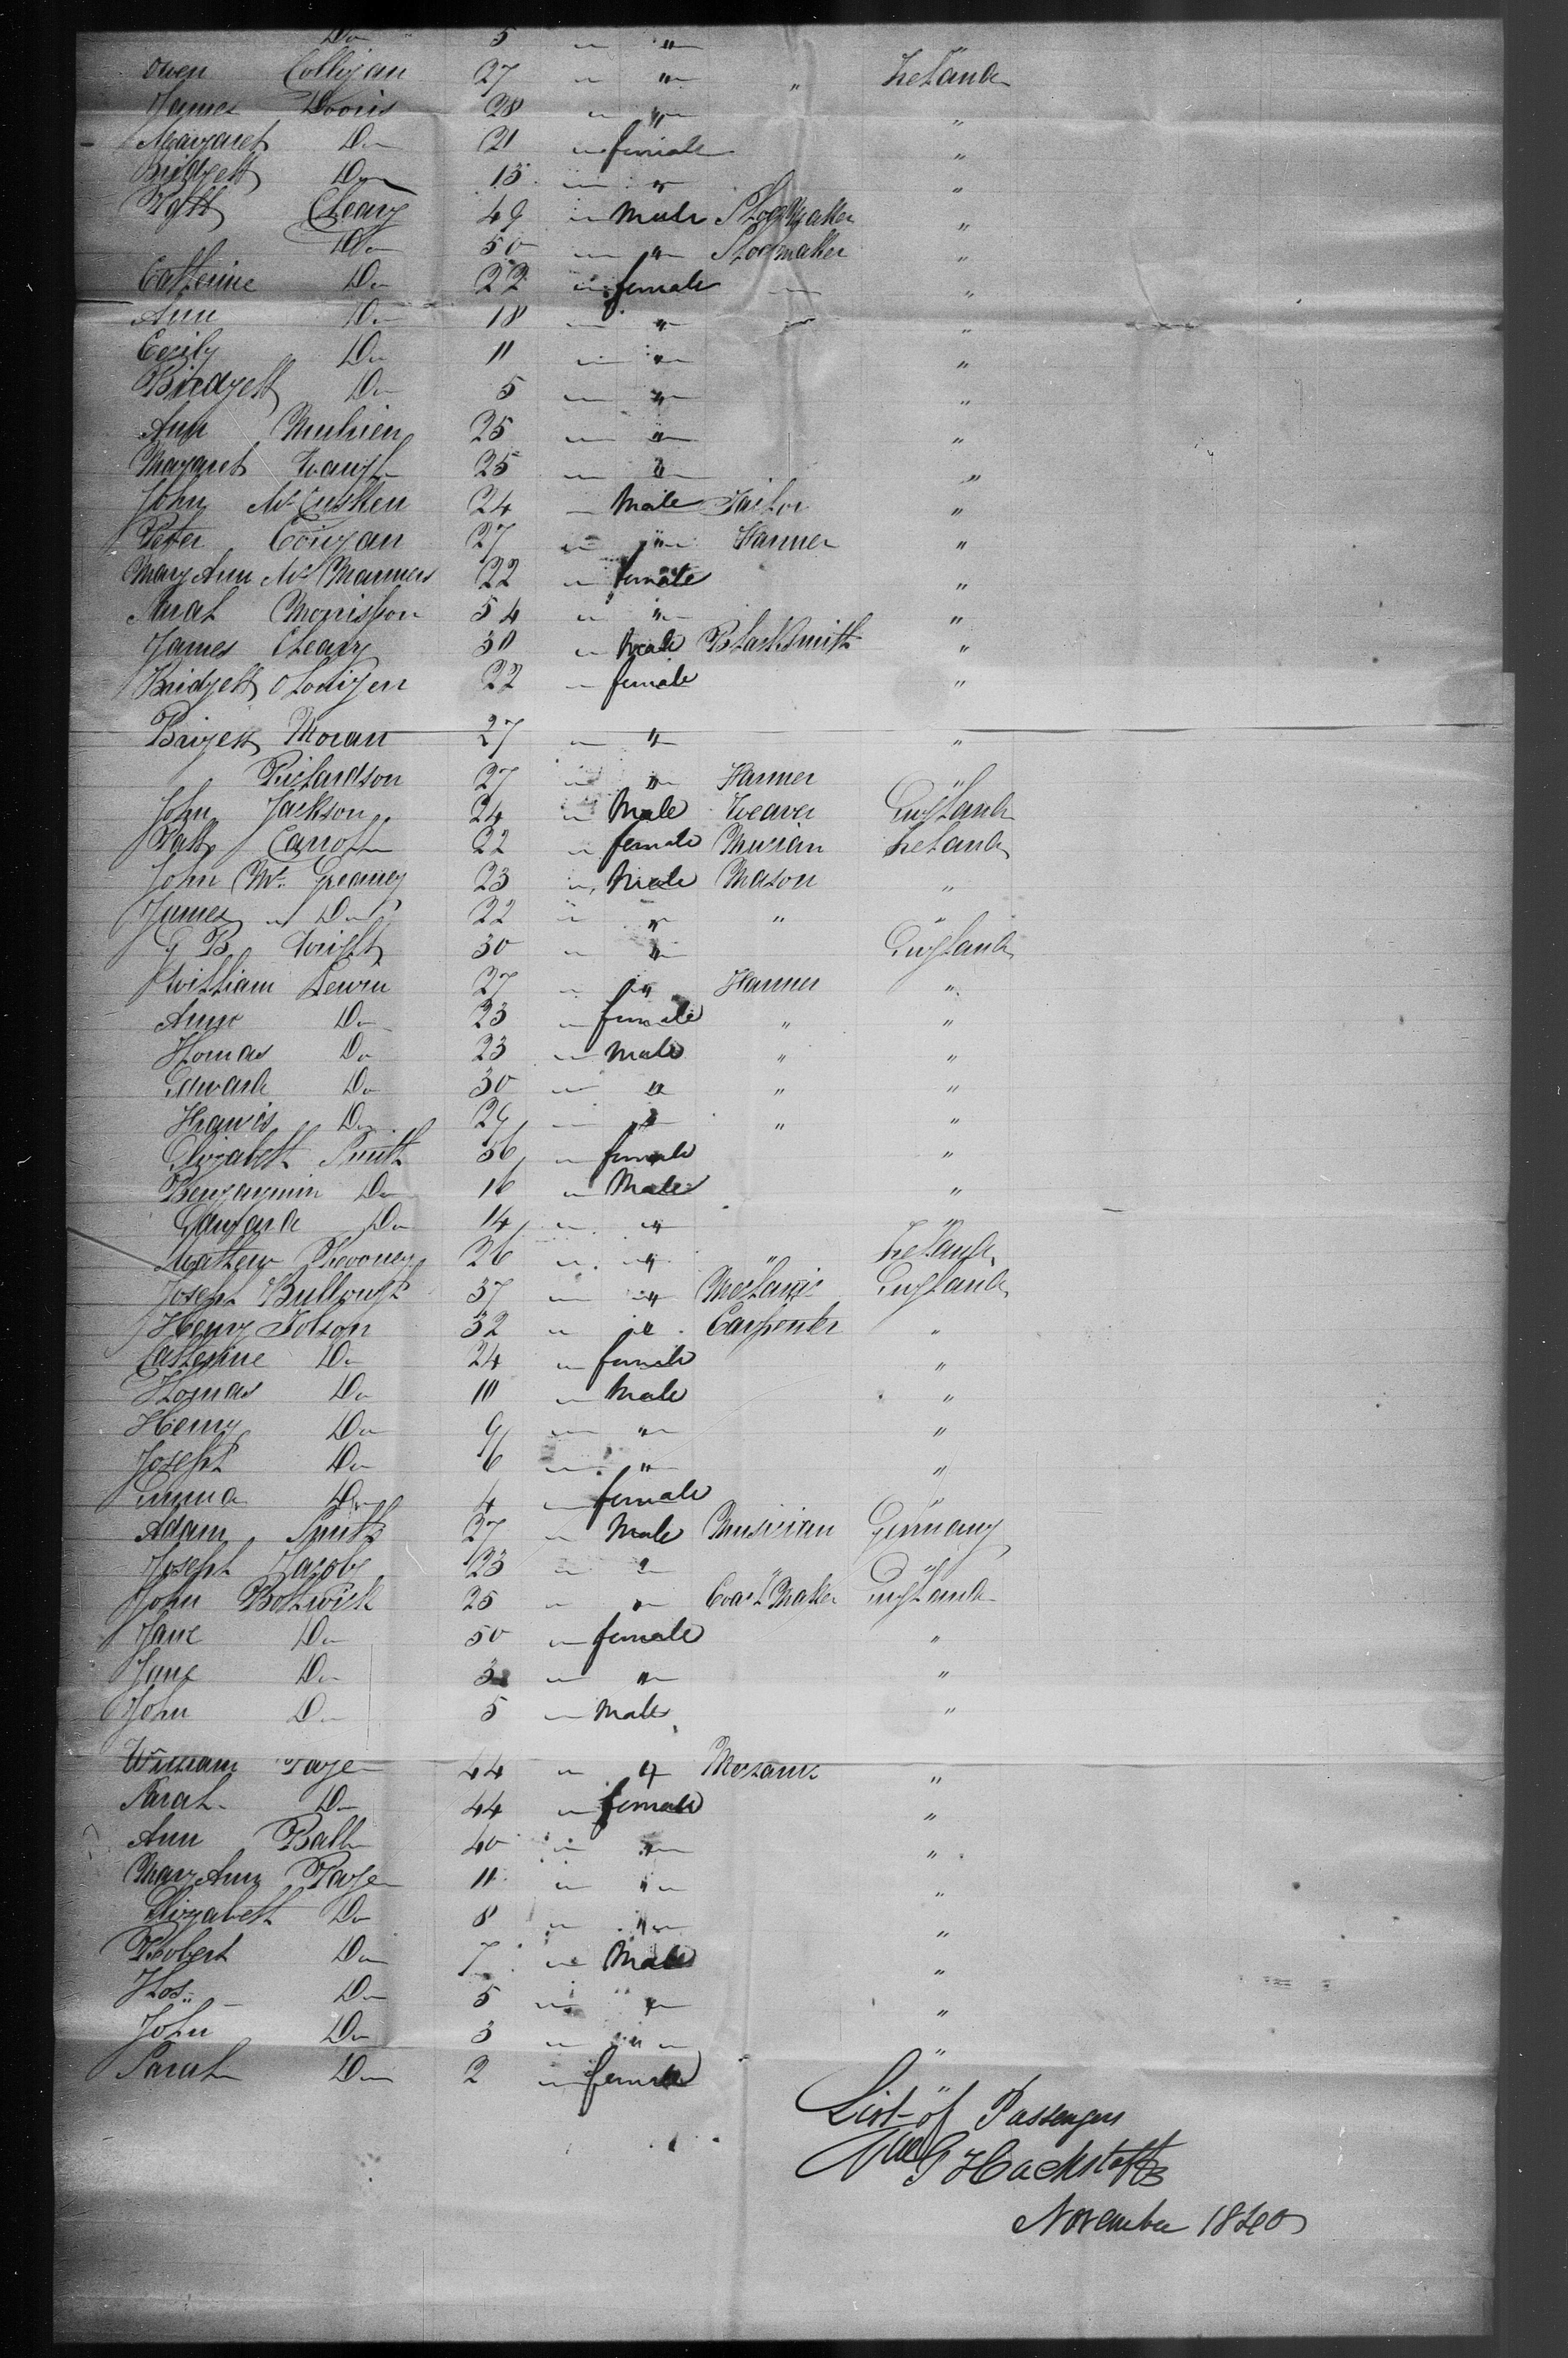 Do 5 " "
Owen Colligan 27 " " " Ireland
James Dooris 28 " " "
Margaret Do 21 " female "
Bridgett Do 13 " " "
Patk Cleary 49 " Male Shoemaker "
Do 50 " " Shoemaker "
Catherine Do 22 " female "
Ann Do 18 " " "
Cecily Do 11 " " "
Bridgett Do 5 " " "
Ann 25 " " "
Margaret 25 " " "
John McCusker 24 " Male Tailor "
Peter Corrigan 27 " " Farmer "
Mary Ann McManus 22 " female "
Sarah Morrisson 54 " " "
James Cleary 30 " Male Blacksmith "
Bridgett 22 " female "
Briget Moran 27 " " "
Richardson 27 " " Farmer "
John Jackson 24 " Male Weaver England
Patk Carroll 22 " female Ireland
John Mc Greaney 23 " Male Mason "
James " Do 22 " " " "
G B Wright 30 " " England
William Lewin 27 " " Farmer "
Anne Do 23 " female " "
Thomas Do 23 " Male " "
Edward Do 30 " " " "
Francis Do 29 " " " "
Elizabeth Smith 56 " female "
Benjaymin Do 16 " Male "
Edward Do 14 " " "
Mathew Rooney 26 " " " Ireland
Joseph Bullough 37 " " Mechanic England
Henry Jolson 32 " " Carpenter "
Catherine Do 24 " female "
Thomas Do 10 " Male "
Henry Do 9 " " "
Joseph Do 6 " " "
Emma Do 4 " female "
Adam Smith 27 " Male Musician Germany
Joseph Jacoby 23 " " " "
John Bothwick 25 " " Coach Maker England
Jane Do 50 " female "
Jane Do 3 " " "
John Do 5 " Male "
William Page 44 " " Mechanic "
Sarah Do 44 " female "
Ann Ball 40 " " "
Mary Ann Page 11 " " "
Elizabeth Do 8 " " "
Robert Do 7 " Male "
Thos Do 5 " " "
John Do 3 " " "
Sarah Do 2 " female "
List of Passengers
Wm G Hackstaff
November 1840